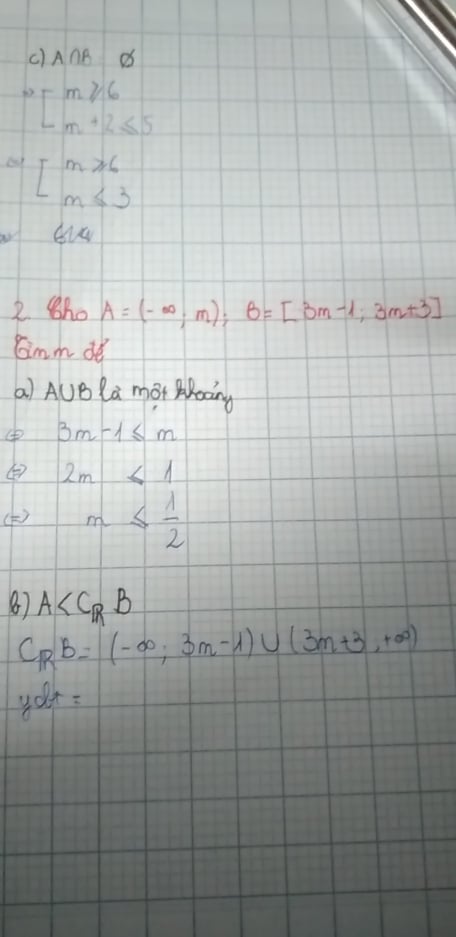 c) A∩B ∅
⇔ [ m ≥ 6
m + 2 ≤ 5
⇔ [ m ≥ 6
m ≤ 3
2. Cho A = (-∞; m); B = [3m-1; 3m+3]
Tìm m để
a) A∪B là một khoảng
⇔ 3m-1 ≤ m
⇔ 2m ≤ 1
⇔ m ≤ 1/2
b) A < CℝB
CℝB = (-∞; 3m-1) ∪ (3m+3, +∞)
ycbt =